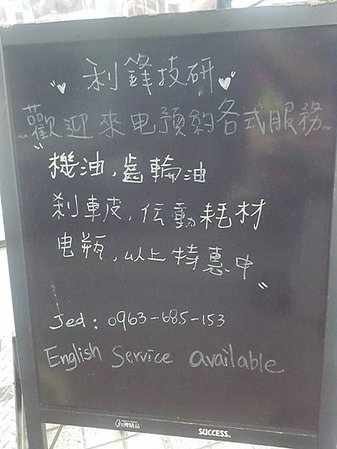 利鋒技研
~歡迎來电預約各式服務~
"機油,齒輪油
剎車皮,伝動耗材
电瓶,以上特惠中"
Jed: 0963-685-153
English Service available
SUCCESS.